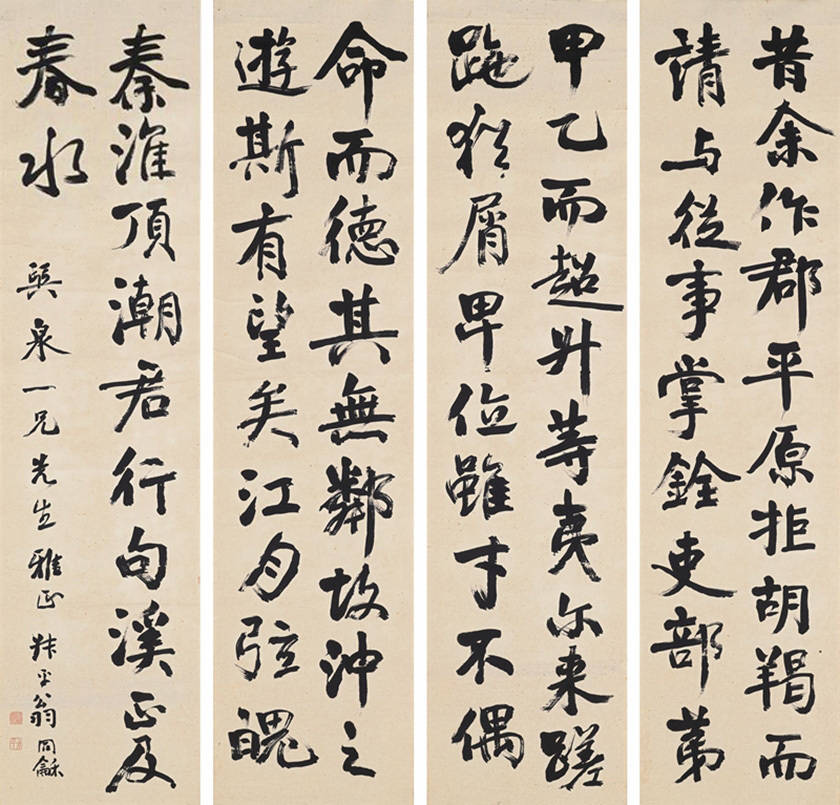 昔余作郡平原拒胡羯而
請与從事掌銓吏部苐
甲乙而超升等夷尔来蹉
跎猶屑卑位雖才不偶
命而德其無鄰故沖之
遊斯有望矣江月弦魄
秦淮頂潮君行句溪正及
春水
巽泉一兄先生雅正 叔平翁同龢